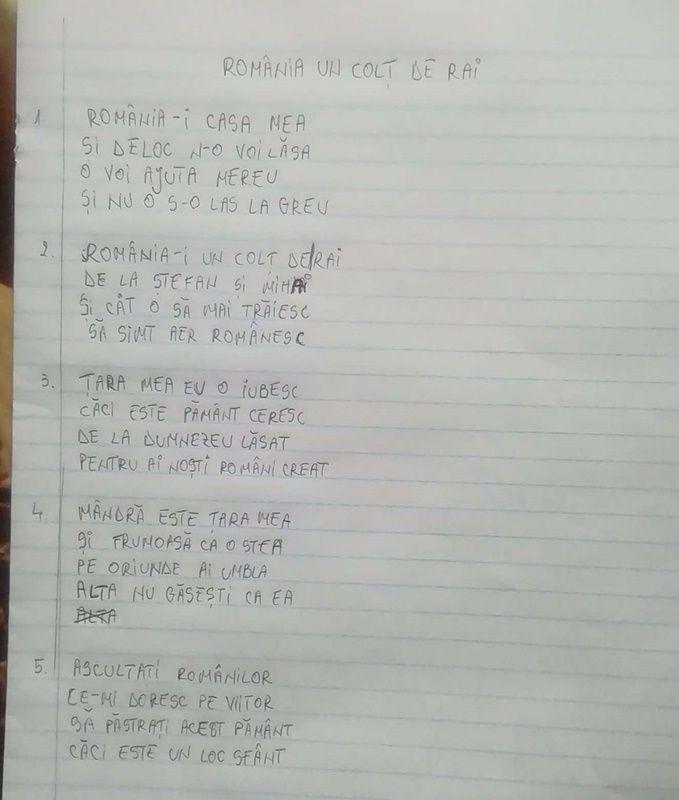 ROMÂNIA UN COLȚ DE RAI
1 ROMÂNIA-I CASA MEA
SI DELOC N-O VOI LĂSA
O VOI AJUTA MEREU
ȘI NU O S-O LAS LA GREU
2. ROMÂNIA-I UN COLT DE/RAI
DE LA ȘTEFAN SI MIHAI
ȘI CÂT O SĂ MAI TRĂIESC
SĂ SIMT AER ROMÂNESC
3. ȚARA MEA EU O IUBESC
CĂCI ESTE PĂMÂNT CERESC
DE LA DUMNEZEU LĂSAT
PENTRU AI NOȘTI ROMÂNI CREAT
4. MÂNDRĂ ESTE ȚARA MEA
ȘI FRUMOASĂ CA O STEA
PE ORIUNDE AI UMBLA
ALTA NU GĂSEȘTI CA EA
ALTA
5. ASCULTATI ROMÂNILOR
CE-MI DORESC PE VIITOR
SĂ PĂSTRAȚI ACEST PĂMÂNT
CĂCI ESTE UN LOC SFÂNT